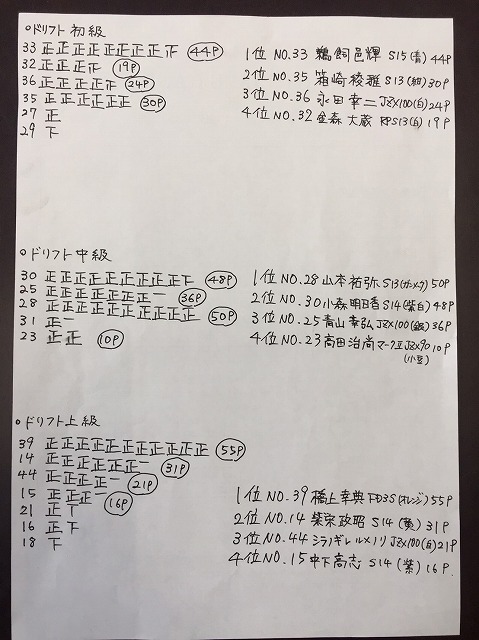 ○ドリフト 初級
33 正正正正正正正正下 44P
32 正正正下 19P
36 正正正正下 24P
35 正正正正正正 30P
27 正
29 下
1位 NO.33 鵜飼邑輝 S15(青) 44P
2位 NO.35 箱崎稜雅 S13(紺) 30P
3位 NO.36 永田幸二 JZX100(白) 24P
4位 NO.32 金森大蔵 RPS13(白) 19P
○ドリフト 中級
30 正正正正正正正正正下 48P
25 正正正正正正正一 36P
28 正正正正正正正正正正 50P
31 正一
23 正正 10P
1位 NO.28 山本祐弥 S13(ガンメタ) 50P
2位 NO.30 小森明日香 S14(紫白) 48P
3位 NO.25 青山幸弘 JZX100(銀) 36P
4位 NO.23 高田治尚 マークⅡ JZX90 10P
(小豆)
○ドリフト上級
39 正正正正正正正正正正正 55P
14 正正正正正正一 31P
44 正正正正一 21P
15 正正正一 16P
21 正丅
16 正下
18 下
1位 NO.39 橋上幸典 FD3S(オレンジ) 55P
2位 NO.14 柴栄政昭 S14(黄) 31P
3位 NO.44 シラノギレルメノリ JZX100(白) 21P
4位 NO.15 中下高志 S14(紫) 16P.